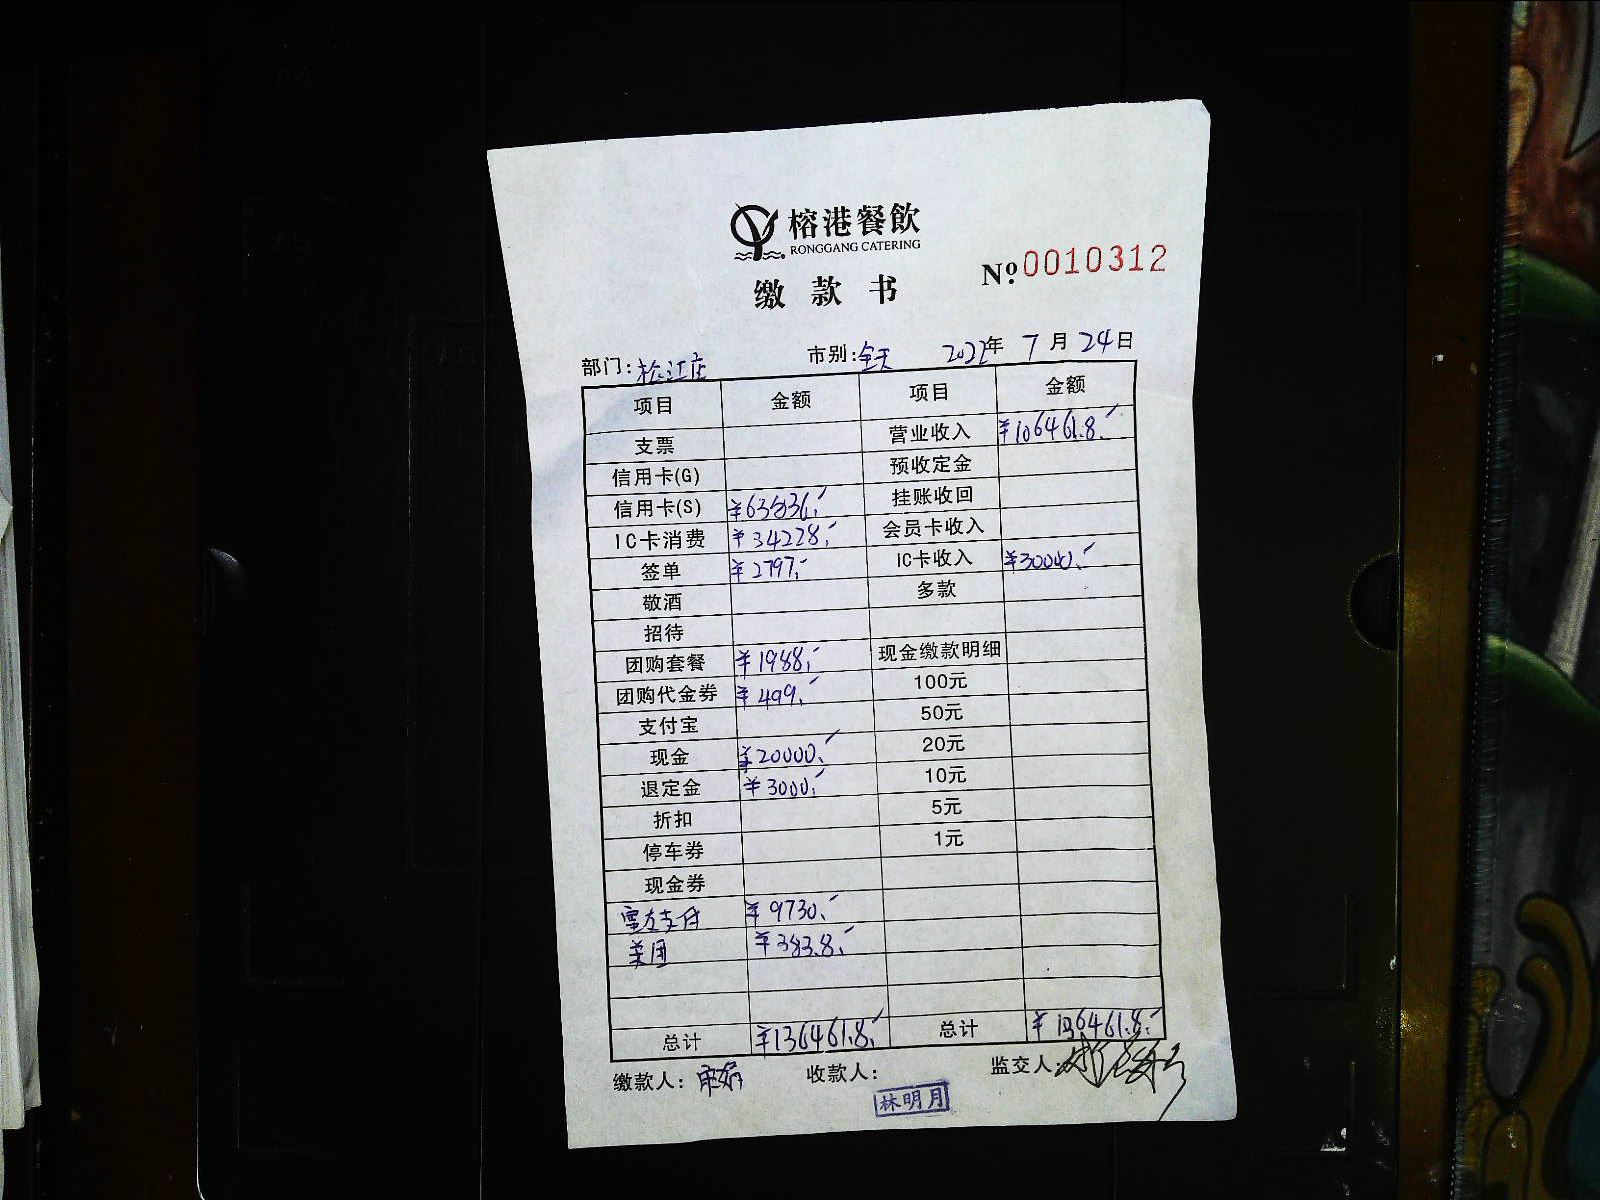 榕港餐飲
RONGGANG CATERING
缴款书
№ 0010312
部门:松江店 市别:全天 2022年 7月 24日
项目 金额 项目 金额
支票 营业收入 ¥106461.8.-
信用卡(G) 预收定金
信用卡(S) ¥63836.- 挂账收回
IC卡消费 ¥34228.- 会员卡收入
签单 ¥2797.- IC卡收入 ¥30000.-
敬酒 多款
招待
团购套餐 ¥1988.- 现金缴款明细
团购代金券 ¥499.- 100元
支付宝 50元
现金 ¥20000.- 20元
退定金 ¥3000.- 10元
折扣 5元
停车券 1元
现金券
富友支付 ¥9730.-
美团 ¥383.8.-
总计 ¥136461.8.- 总计 ¥136461.8.-
缴款人: 收款人: 监交人:
林明月